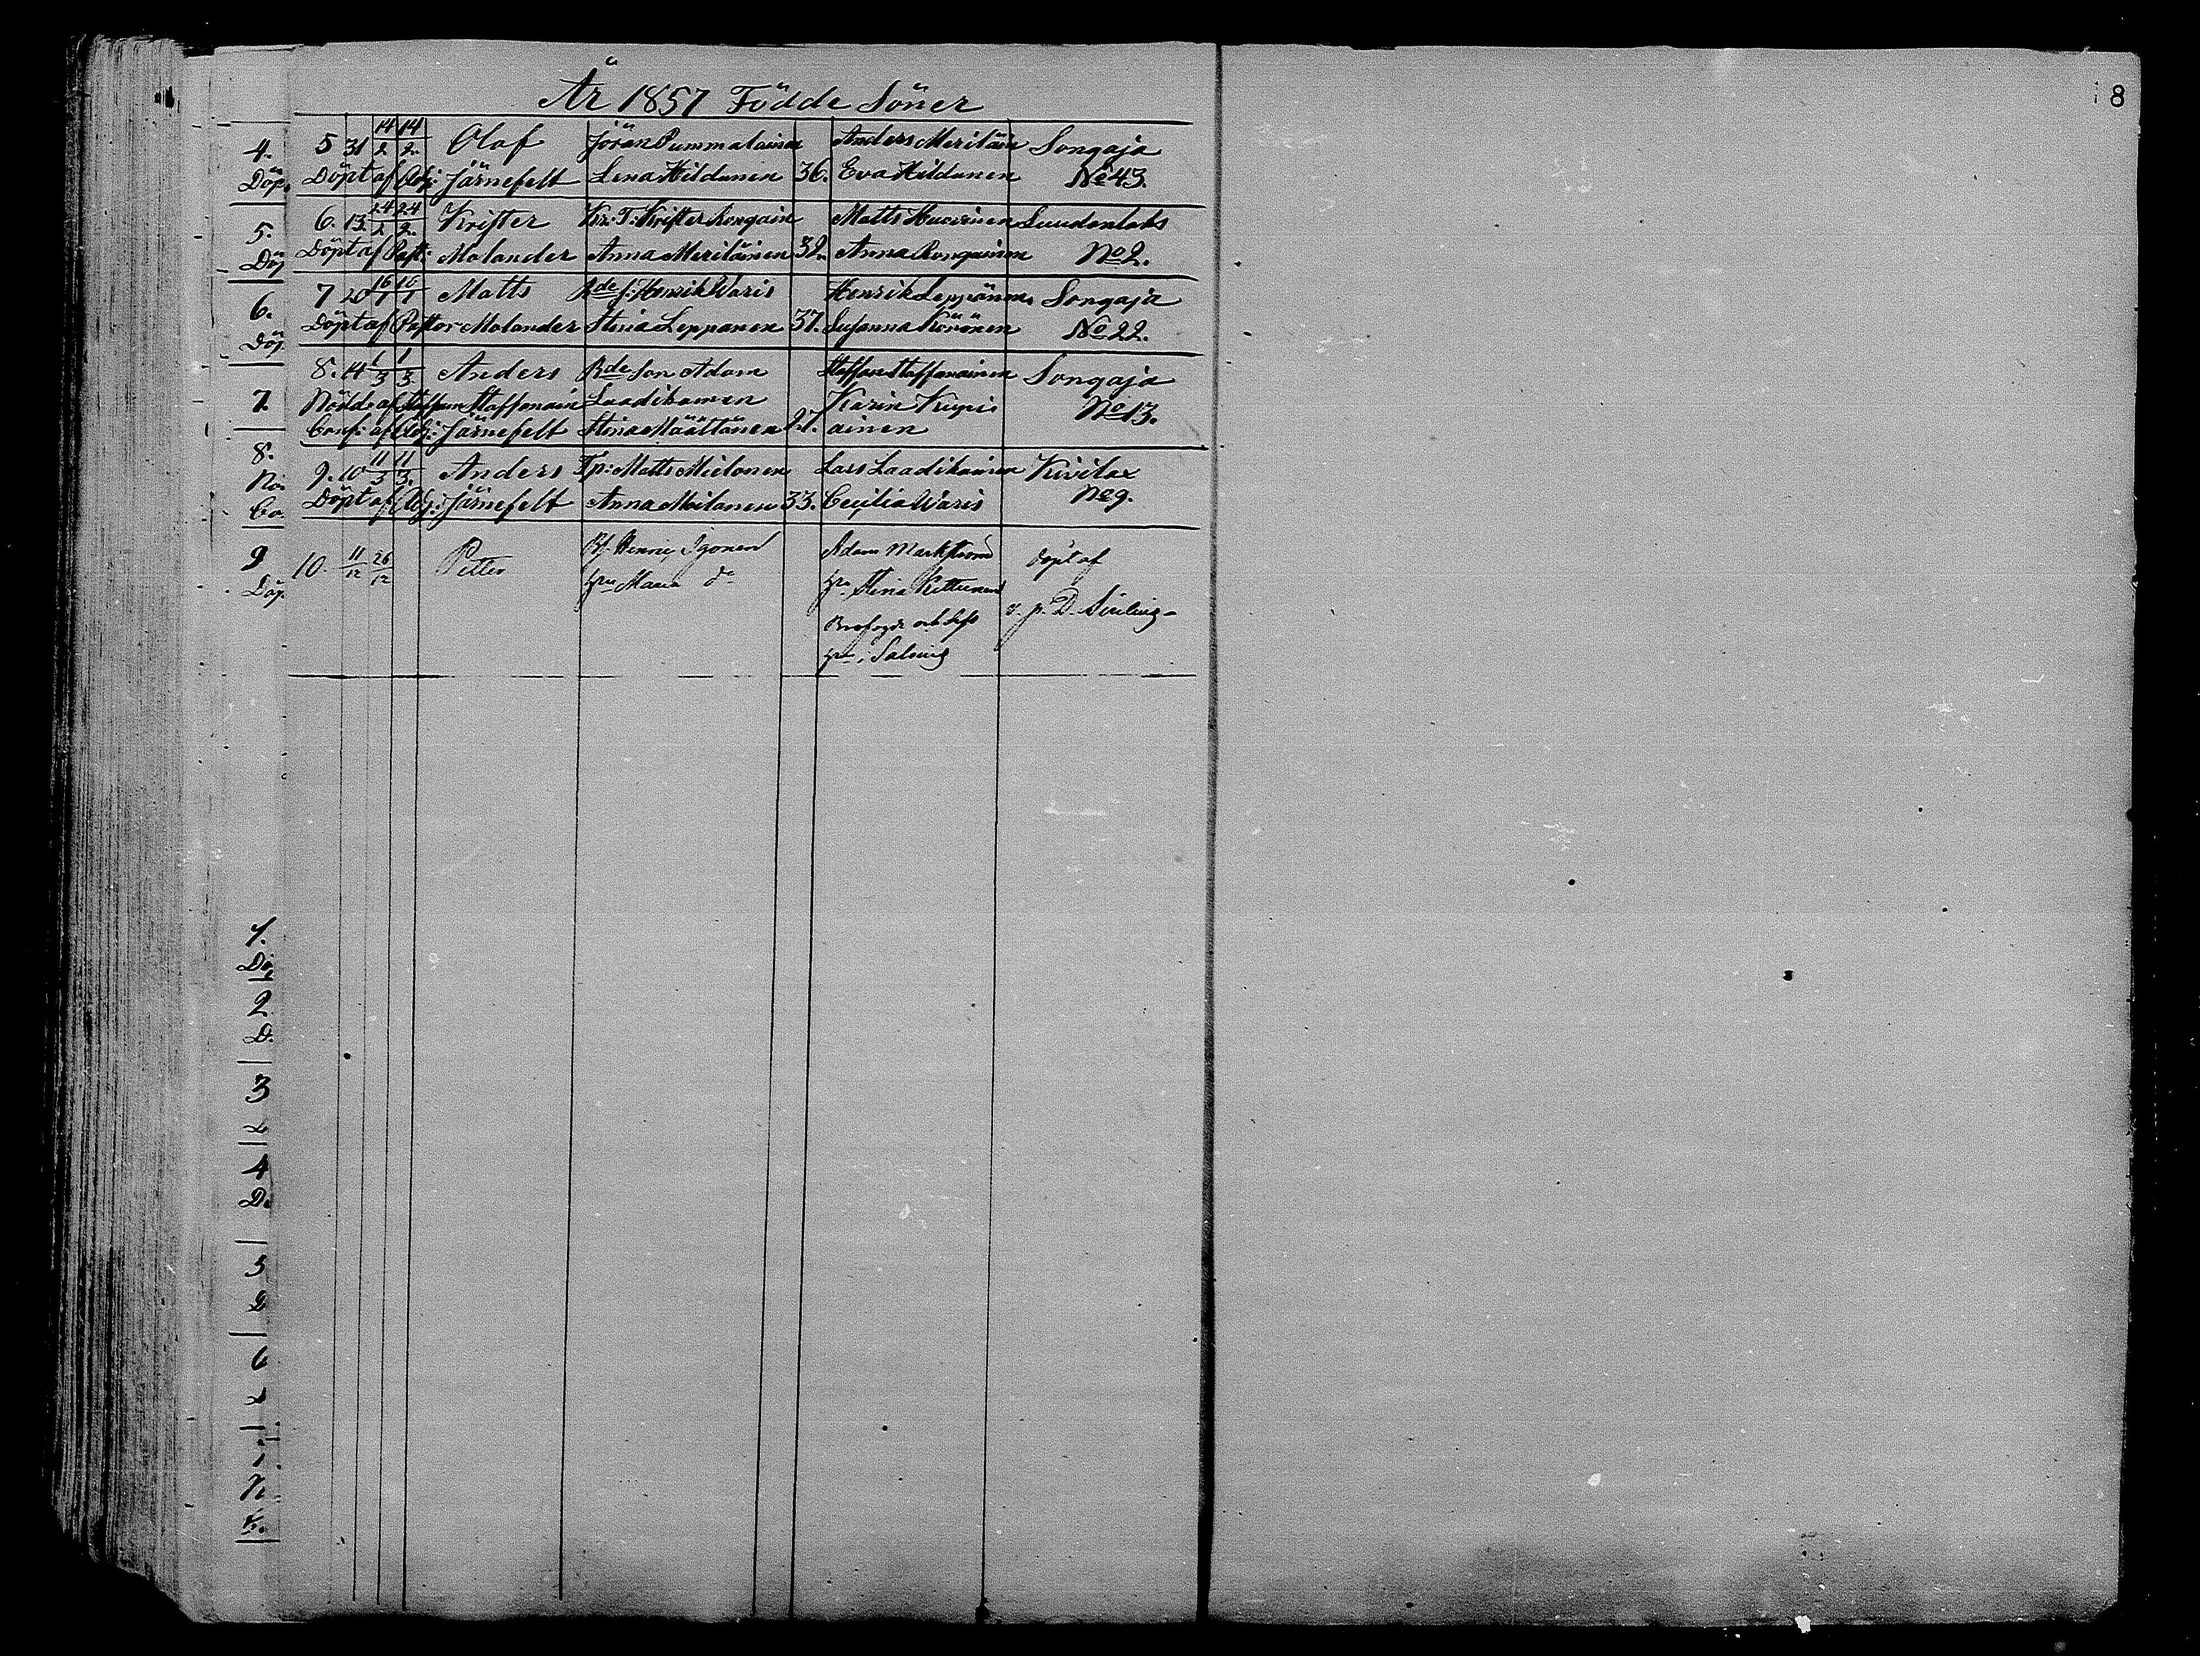 År 1857 Födde Söner
8
5 31 14/2 14/2. Olaf Jöran Pummalainen Anders Meriläin Songaja
Döpt af Adj: Järnefelt Lena Hildunen 36. Eva Hildunen No 43.
6. 13. 24/2 24/2. Krister Kr: T: Krister Rongain Matts Huovinen Luudenlaks
Döpt af Past: Molander Anna Meriläinen 32. Anna Rongainen No 2.
7 20 16/1 16/1 Matts Rde s: Henrik Waris Henrik Leppänen Songaja
Döpt af Pastor Molander Stina Leppänen 37. Susanna Körönen No 22.
8. 14 1/3 1/3. Anders Rde son Adam Staffan Staffanainen Songaja
Nöddö: af Staffan Staffanain Laadikainen Karin Krupi= No 13.
Conf: af Adj: Järnefelt Stina Määttänen 27. ainen
9. 10 11/3 11/3. Anders Tp: Matts Mielonen Lars Laadikainen Kivilax
Döpt af Adj: Järnefelt Anna Moilanen 33. Cecilia Waris No 9.
10. 11/12 26/12 Petter Henric Igonen Adam Markström döpt af
Hru Maria do Hru Stina Kettunen
v. p. D.
Hru i Salmis
4.
Döp.
5.
Döp
6.
Döp.
7.
8.
Nö.
Co.
9
Döp.
1.
Dö.
2
D.
3
4
D.
5
6